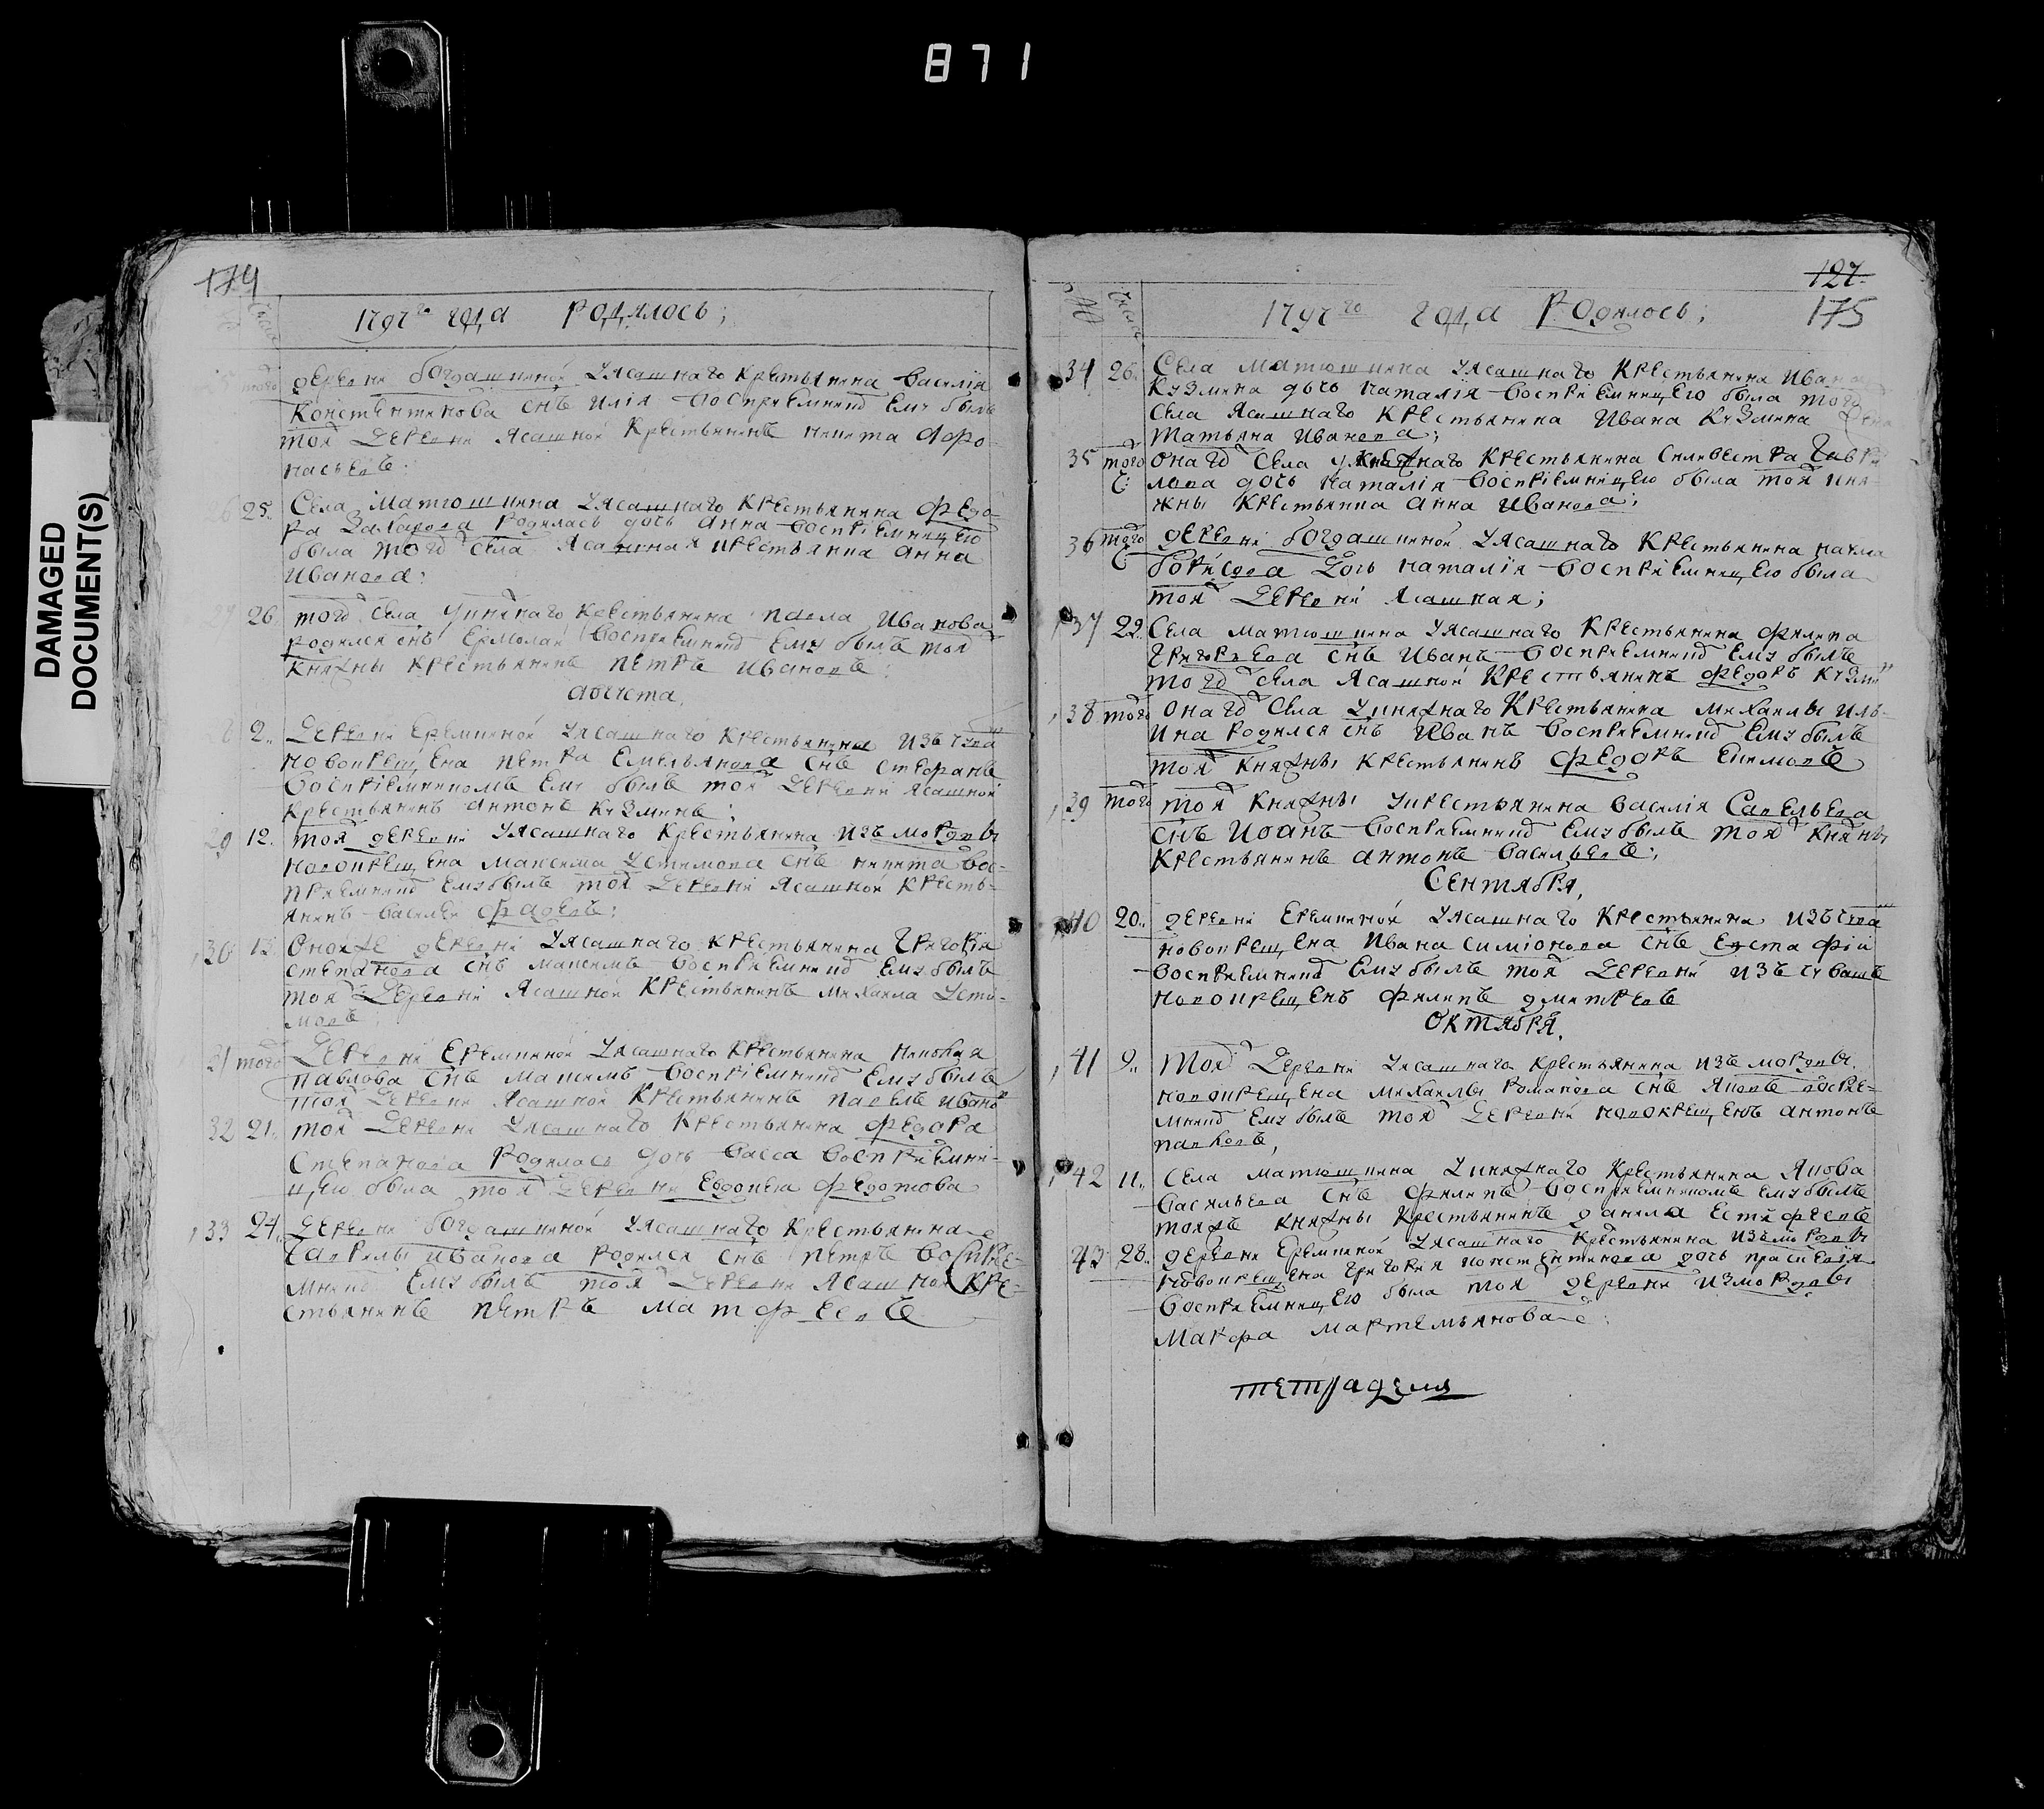 871
DAMAGED
DOCUMENT(S)
174
1797го года родилось;
того деревни Богдашкиной у ясашнаго крестьянина Василія
Константинова снъ Илія воспріемникомъ ему былъ
тоя деревни ясашной крестьянинъ Никита Афо-
насьевъ:
25. Села Матюшкина у ясашнаго крестьянина Федо-
ра Захарова родилась дочь Анна воспріемницею
была того села ясашная крестьянка Анна
Иванова:
26. того села у княжнаго крестьянина Павла Иванова
родился снъ Ермолай воспріемникъ ему былъ тоя
княжны крестьянинъ Петръ Ивановъ:
Августа
2. Деревни Еремкиной у ясашнаго крестьянина изъ чуваш
новокрещена Петра Емельянова снъ Стефанъ
воспріемникомъ ему былъ тоя деревни ясашной
крестьянинъ Антонъ Кузминъ;
29 12. тоя деревни у ясашнаго крестьянина изъ мордвы
новокрещена Максима Устимова снъ Никита вос-
пріемникъ ему былъ тоя деревни ясашной кресть-
янинъ Василей Фадеевъ:
30 13 Оной же деревни у ясашнаго крестьянина Григорія
Степанова снъ Максимъ воспріемникъ ему былъ
тоя деревни ясашной крестьянинъ Михайла Усти-
мовъ
31 того Деревни Еремкиной у ясашнаго крестьянина Николая
Павлова снъ Максимъ воспріемникъ ему былъ
тоя деревни ясашной крестьянинъ Павелъ Иванов
32 21. тоя деревни у ясашнаго крестьянина Федора
Степанова родилась дочь Васса воспріемни-
цею была тоя деревни Евдокея Федотова
33 24. Деревни Богдашкиной у ясашнаго крестьянина
Гаврилы Иванова родился снъ Петръ воспріе-
мникъ ему былъ тоя деревни ясашной кре-
стьянинъ Петръ Матфеевъ
127
175
№ Числа
1797го года родилось;
34 26. Села Матюшкина у ясашнаго крестьянина Ивана
Кузмина дочь Наталія воспріемницею была того
села ясашнаго крестьянина Ивана Кузмина
Татьяна Иванова;
35 того ч: онаго села у княжнаго крестьянина Силивестра Гаври-
лова дочь Наталія воспріемницею была тоя кня-
жны крестьянка Анна Иванова;
36 того ч: деревни Богдашкиной у ясашнаго крестьянина
Борисова дочь Наталія воспріемницею была
тоя деревни ясашная;
37 29. Села Матюшкина у ясашнаго крестьянина Филипа
Григорьева снъ Иванъ воспріемникъ ему былъ
того села ясашной крестьянинъ Федоръ Кузмин
38 того онаго села у княжнаго крестьянина Михайлы Иль-
ина родился снъ Иванъ воспріемникъ ему былъ
тоя княжны крестьянинъ Федоръ Екимовъ
39 того тоя княжны у крестьянина Василія Савельева
снъ Иоанъ воспріемникъ ему былъ тоя княжны
крестьянинъ Антонъ Васильевъ;
Сентября,
40 20. деревни Еремкиной у ясашнаго крестьянина изъ чуваш
новокрещена Ивана Симіонова снъ Евстафій
воспріемникъ ему былъ тоя деревни изъ чувашъ
новокрещенъ Филипъ Дмитревъ
Октября.
41 9. Тоя деревни у ясашнаго крестьянина изъ мордвы
новокрещена Михайлы Романова снъ Яковъ воспре-
мникъ ему былъ тоя деревни новокрещенъ Антонъ
Павловъ,
42 11. Села Матюшкина у княжнаго крестьянина Якова
Васильева снъ Филипъ воспріемникомъ ему былъ
тоя же княжны крестьянинъ Данила Естифеевъ
43 28. деревни Еремкиной у ясашнаго крестьянина изъ мордвы
новокрещена Григорія Константинова дочь Праскевія
воспріемницею была тоя деревни из мордвы
Марфа Мартемьянова: